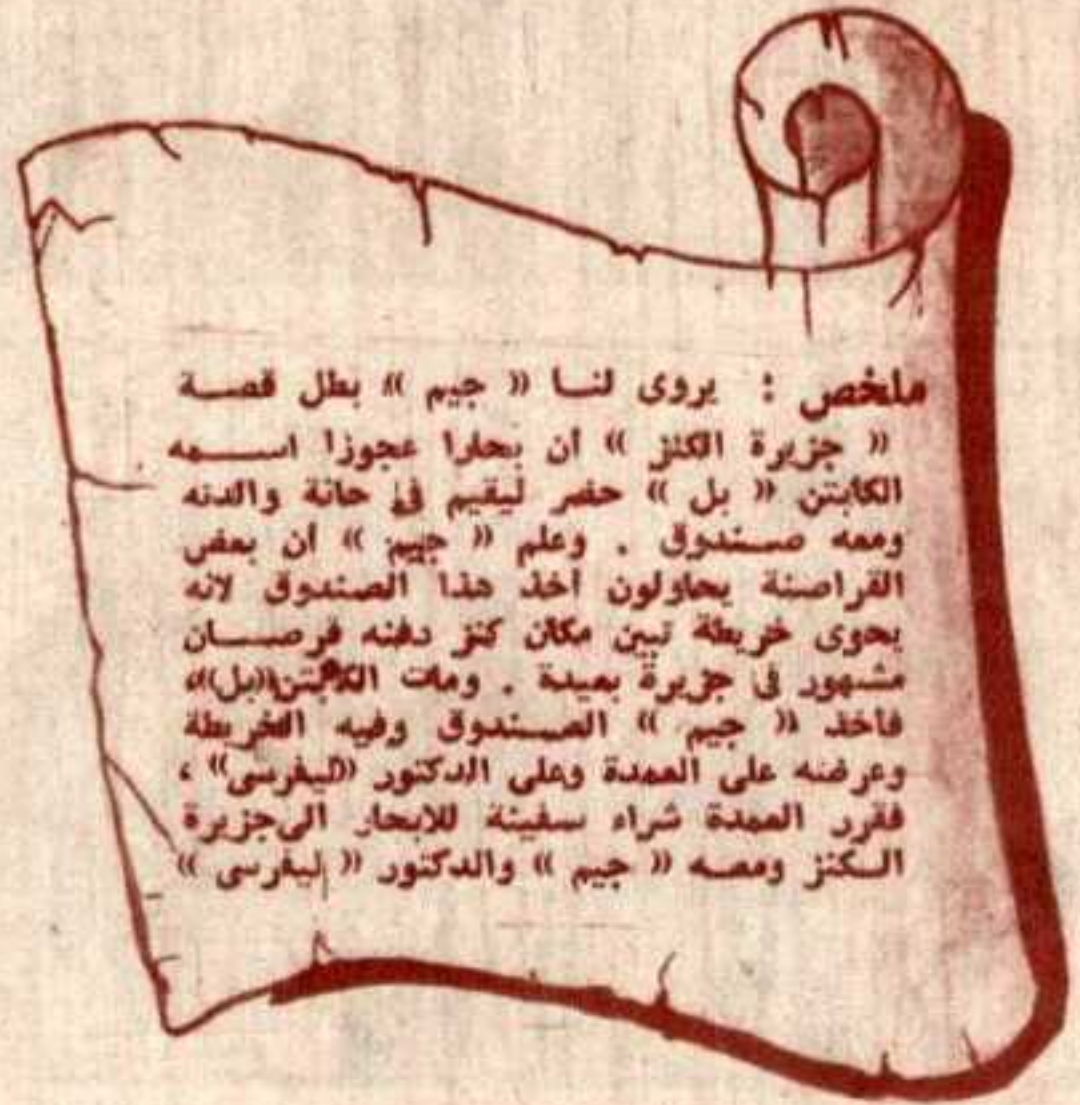 ملخص : يروى لنا « جيم » بطل قصة
« جزيرة الكنز » أن بحارا عجوزا اسمه
الكابتن « بل » حضر ليقيم فى حانة والدته
ومعه صندوق . وعلم « جيم » أن بعض
القراصنة يحاولون أخذ هذا الصندوق لانه
يحوى خريطة تبين مكان كنز دفنه قرصان
مشهور فى جزيرة بعيدة . ومات الكابتن «بل»،
فأخذ « جيم » الصندوق وفيه الخريطة
وعرضه على العمدة وعلى الدكتور «ليفرسى» ،
فقرر العمدة شراء سفينة للابحار الى جزيرة
الكنز ومعه « جيم » والدكتور « ليفرسى »